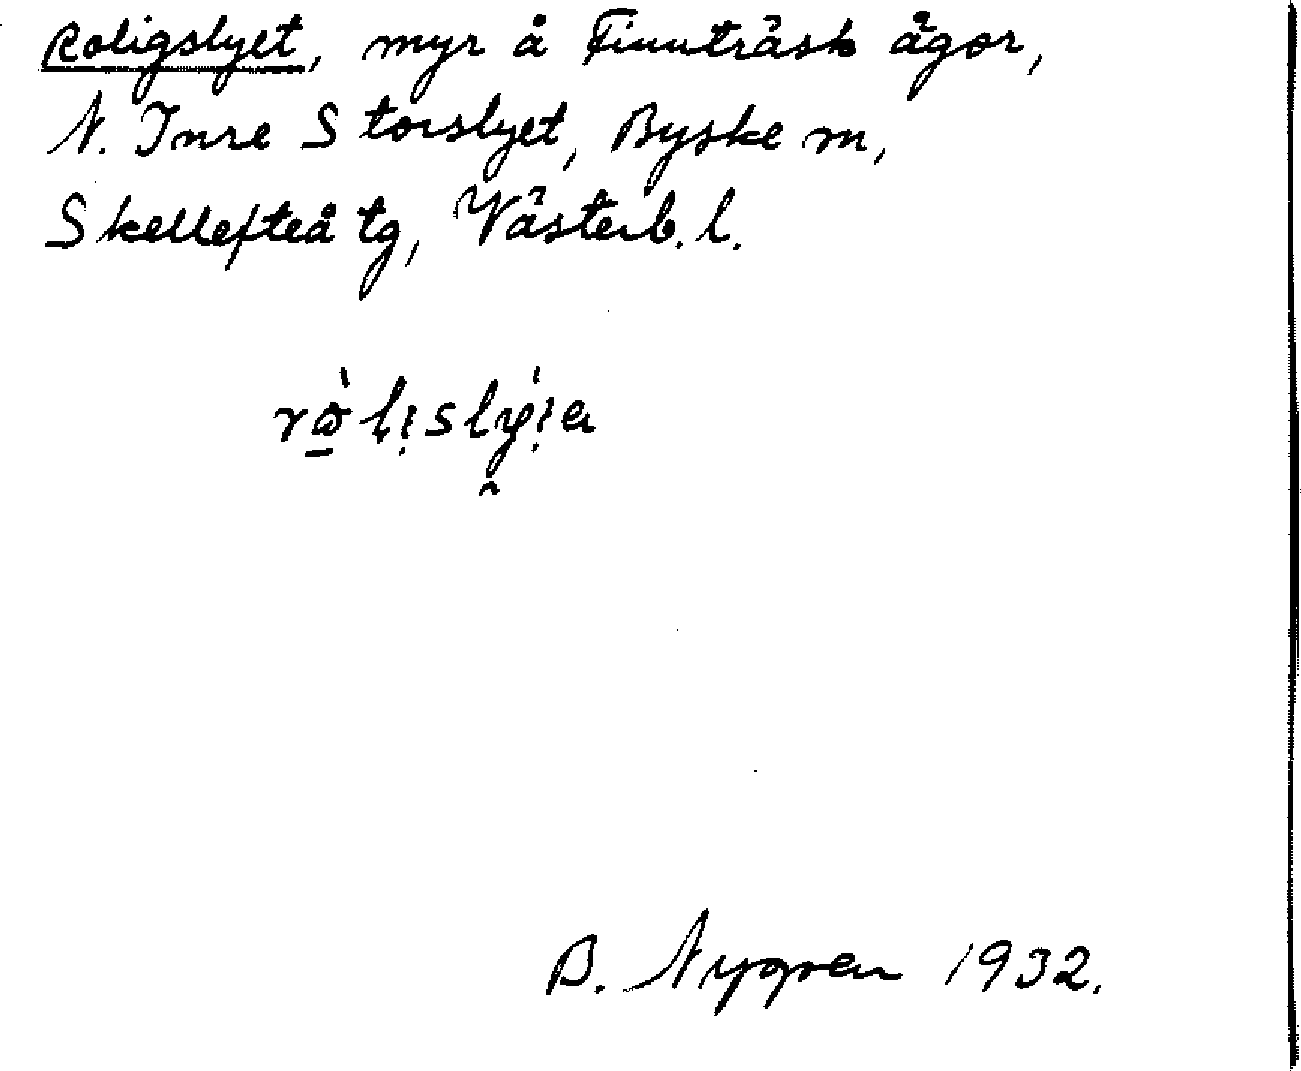 Roligslyet, myr å Finnträsk ägor,
N. Inre Storslyet, Byske m,
Skellefteå tg, Västerb. l.
B. Nygren 1932.